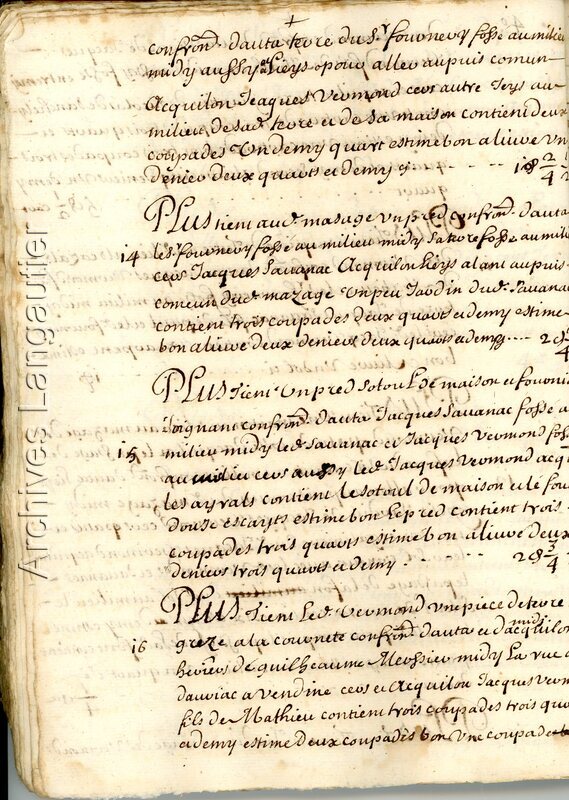 +
confron.t d'auta terre du s.r fournery fosse au milieu
midy aussy et leys pour aller au puis comun
Acquilon Jeaques Vermond cers autre leys au
milieu de sad. terre et de sa maison contient deux
coupades Un demy quart estime bon a liuvre Un
denier deux quarts et demy 1 d 2/4
PLus tient aud. masage Un pred confron.t d'auta
14 le s.r fournery fosse au milieu midy sa terre fosse au milieu
cers Jacques Sauanac Acquilon leys alant au puis
comeun dud. mazage Un peu Jardin dud. Sauanac
contient trois coupades deux quarts et demy estime
bon a liuvre deux deniers deux quarts et demy 2 d
PLus Tient Un pred sotoul de maison et fourniu
15 Joignant confron.t d'auta Jacques Sauanac fosse a
milieu midy led. Sauanac et Jacques Vermond foss
au milieu cers aussy led. Jacques Vermond acq
les ayrals contient le sotoul de maison et le four
douse escayts estime bon Le pred contient trois
coupades trois quarts estime bon a liuvre deux
deniers trois quarts et demy 2 d 3/4
PLus Tient Led. Vermond Une piece de terre
16 greze a la couronete confron.t d'auta et d'acquilon midy
heritiers de guilheaume Meussieu midy La rue d
dauviac a Vendine cers et Acquilon Jacques Verm
fils de Mathieu contient trois coupades trois qua
a demy estime deux coupades bon Une coupade
Archives Langautier